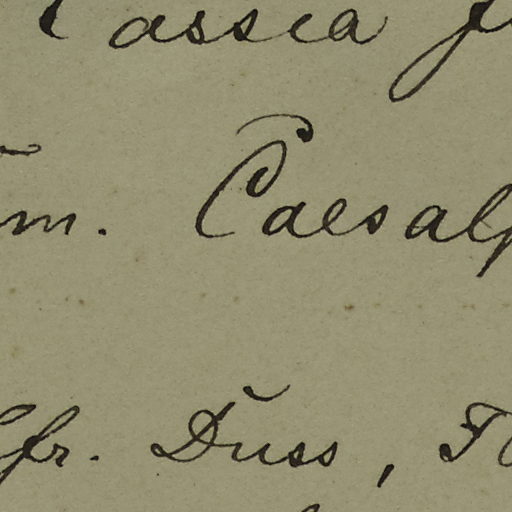 Cassia
m. Caesalp
Cfr. Duss,